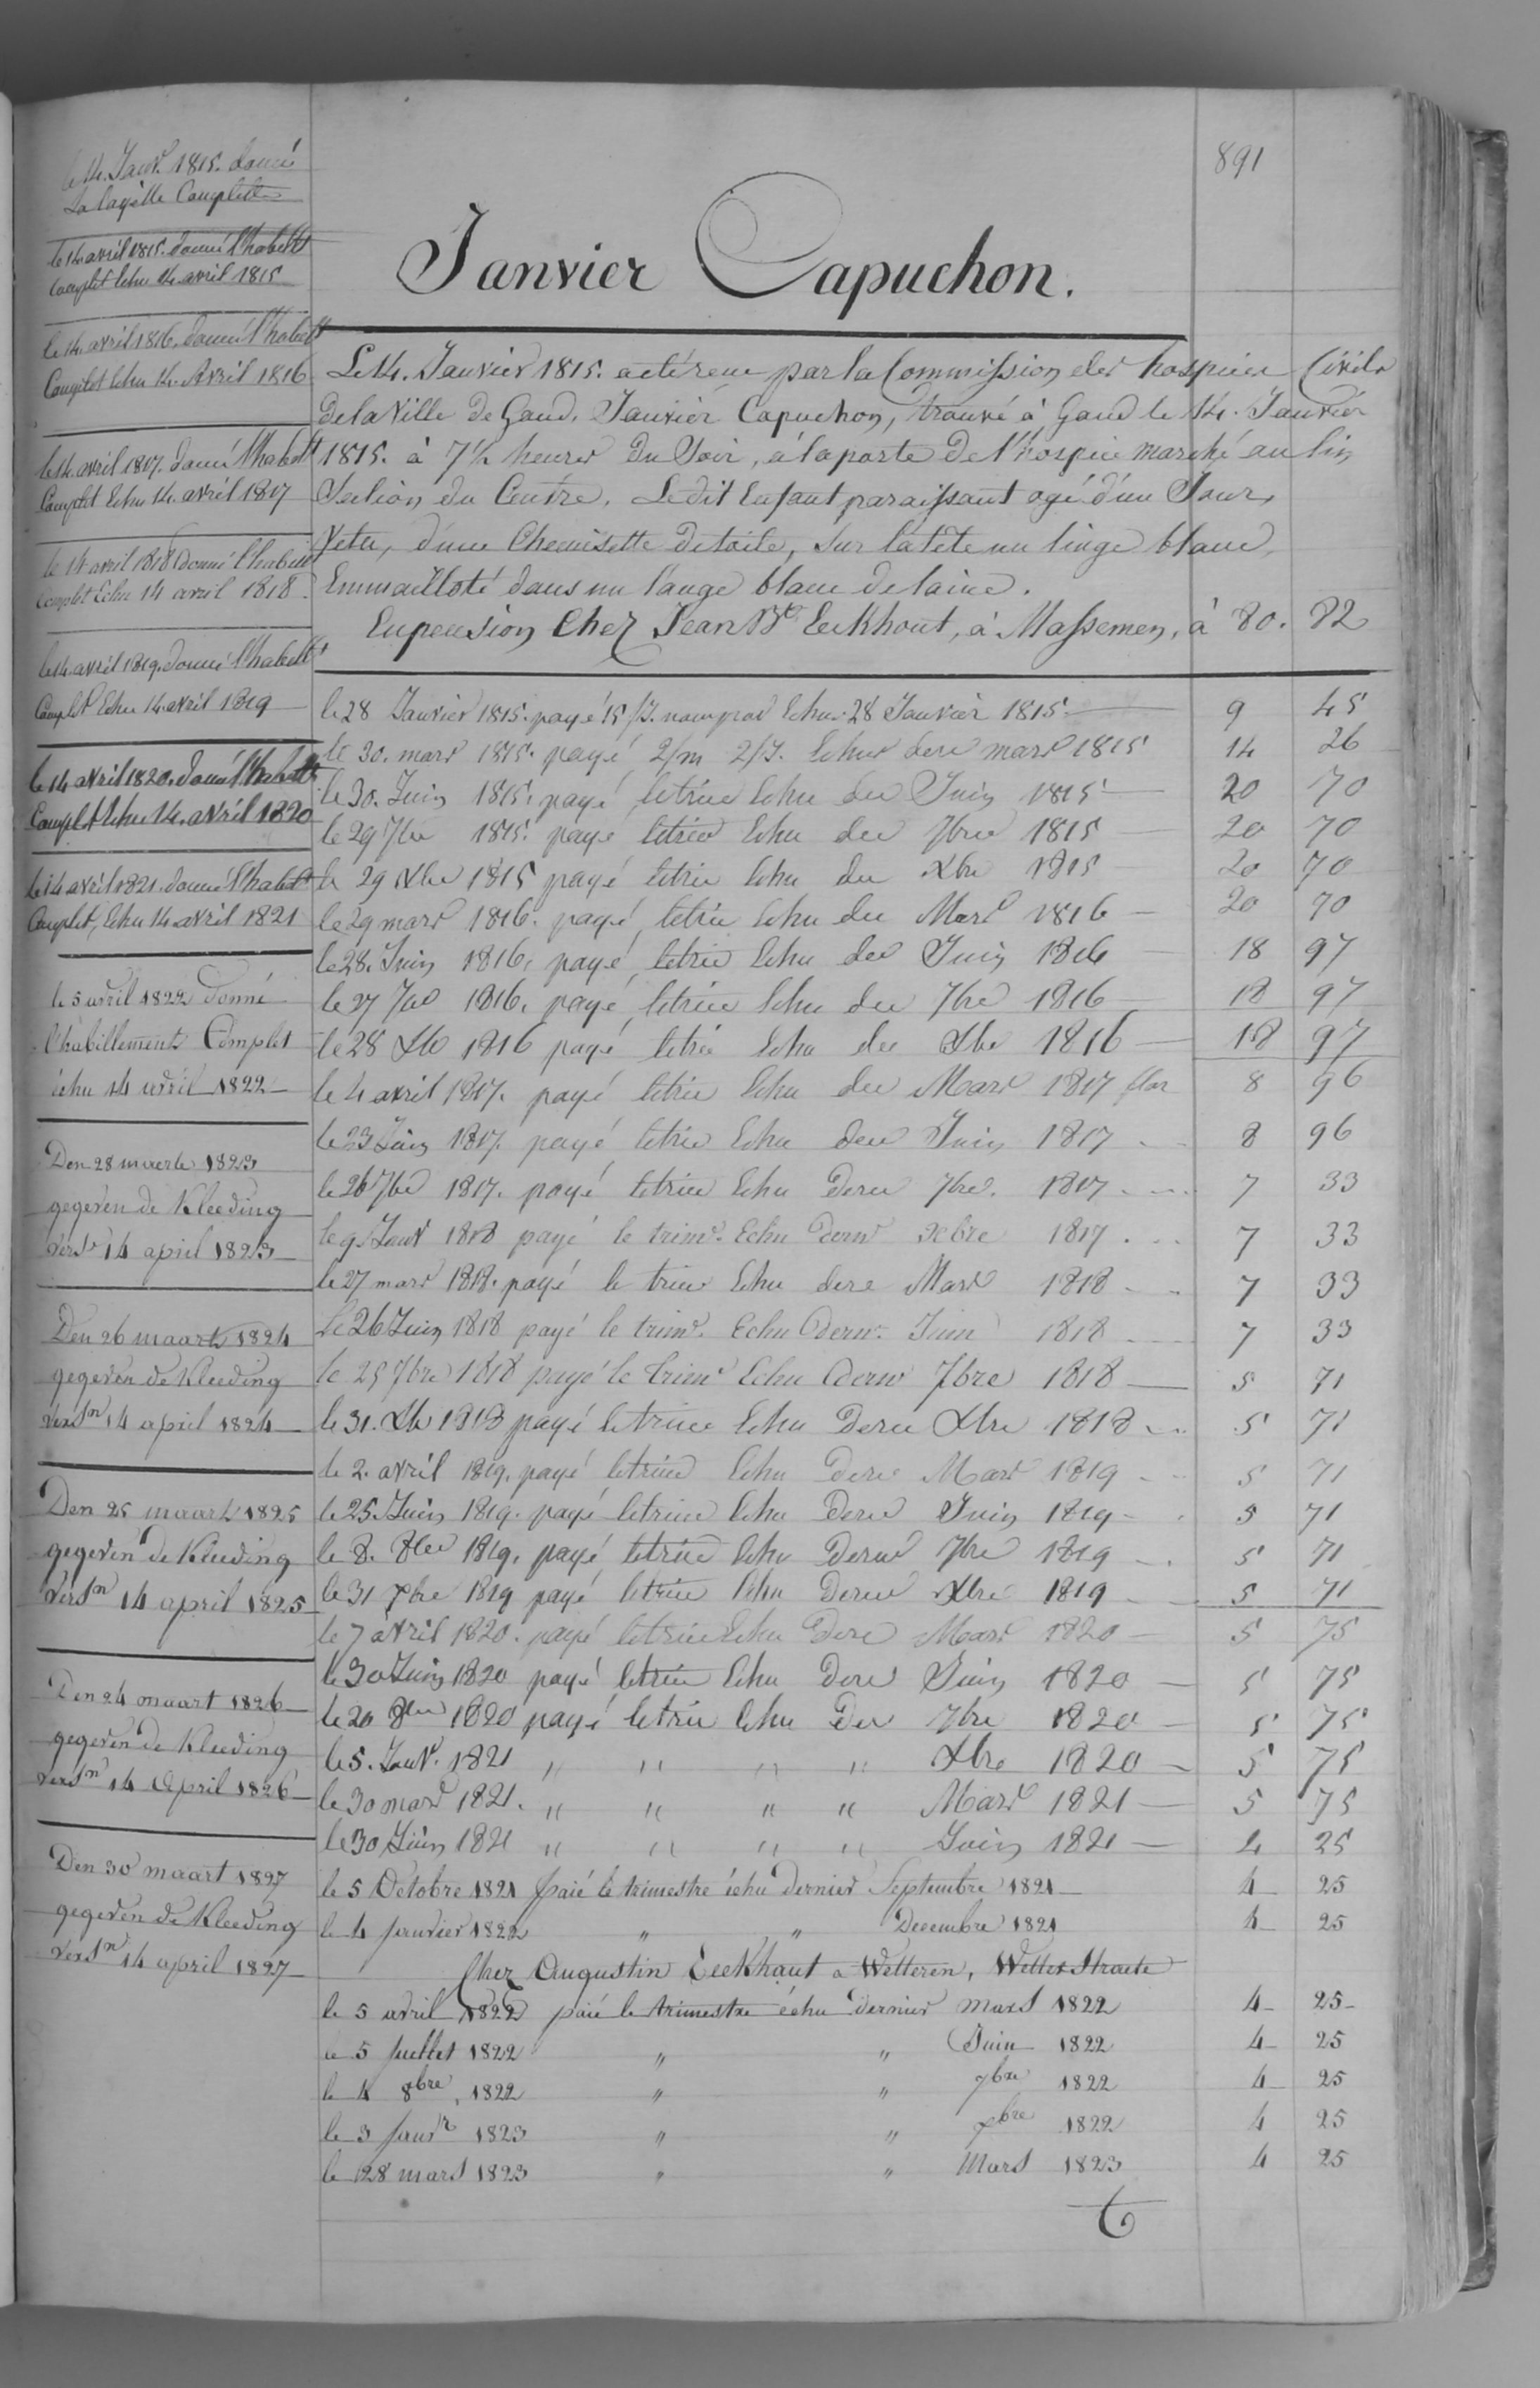 891
Janvier Capuchon.
le 14. Janv.r 1815. donné
La layette Complette
le 14 avril 1815. donné l'habill.t
Complet Echu 14. avril 1815
le 14. avril 1816. donné l'habill.t
Complet Echu 14. Avril 1816
le 14. avril 1817. donné l'habill.t
Complet Echu 14. avril 1817
le 14 avril 1818 donné l'habill.t
Complet Echu 14 avril 1818.
le 14. avril 1819. donné l'habill.t
Complet Echu 14. avril 1819
le 14 avril 1820. donné l'habill.t
Complet Echu 14. avril 1820
le 14 avril 1821. donné l'habill.t
Complet, Echu 14 avril 1821
le 5 avril 1822 donné
l'habillement Complet
échu 14 avril 1822
Den 28 maerte 1823
gegeven de Kleeding
vers.n 14 april 1823
Den 26 maart 1824
gegeven de Kleeding
vers.n 14 april 1824
Den 25 maart 1825
gegeven de Kleeding
vers.n 14 april 1825
Den 24 maart 1826
gegeven de Kleeding
vers.n 14 April 1826
Den 30 maart 1827
gegeven de Kleeding
vers.n 14 april 1827
Le 14. Janvier 1815. a été reçu par la Commission des hospices Civils
de la Ville de Gand. Janvier Capuchon, trouvé à Gand le 14. Janvier
1815. à 7 1/2 heures du Soir, à la porte de l'hospice marché au lin
Section du Centre. Ledit Enfant paraissant agé d'un Jour,
Vetu, d'une Chemisette de toile, sur la tête un linge blanc,
Emmailloté dans un lange blanc de laine.
En pension Chez Jean Bte Eeckhout, à Massemen, à 80. 82
le 28 Janvier 1815. payé 15/J. Echu 28 Janvier 1815 9 45
le 30. mars 1815. payé 2/m 2/J. Echus der mars 1815 14 26
le 30. Juin 1815. payé le trim Echu der Juin 1815 20 70
le 29 7bre 1815. payé le trim Echu der 7bre 1815 20 70
le 29 Xbre 1815 payé le trim Echu der Xbre 1815 20 70
le 29 mars 1816. payé le trim Echu der Mars 1816 20 70
le 28. Juin 1816. payé le trim Echu der Juin 1816 18 97
le 27 7bre 1816. payé le trim Echu der 7bre 1816 18 97
le 28 Xbre 1816 payé le trim Echu der Xbre 1816 18 97
le 4 avril 1817. payé le trim Echu der Mars 1817 flor 8 96
le 23 Juin 1817. payé le trim Echu der Juin 1817 8 96
le 26 7bre 1817. payé le trim Echu Dern 7bre. 1817 7 33
le 9 Janv 1818 payé le trim. Echu Dern xbre 1817 7 33
le 27 mars 1818. payé le trim Echu dern Mars 1818 7 33
Le 26 Juin 1818 payé le trim. Echu Dern. Juin 1818 7 33
le 25 7bre 1818 payé le trim Echu Dern 7bre 1818 5 71
le 31. Xbre 1818 payé le trim Echu Dern Xbre 1818 5 71
le 2. avril 1819. payé le trim Echu Dern Mars 1819 5 71
le 25. Juin 1819. payé le trim Echu Dern Juin 1819 5 71
le 8. 8bre 1819. payé le trim Echu Dern 7bre 1819 5 71
le 31 xbre 1819 payé le trim Echu Dern Xbre 1819 5 71
le 7 avril 1820. payé le trim Echu Dern Mars 1820 5 75
le 30 Juin 1820 payé le trim Echu Dern Juin 1820 5 75
le 20 8bre 1820 payé le trim Echu Der 7bre 1820 5 75
le 5. Janv. 1821 " " " " Xbre 1820 5 75
le 30 mars 1821. " " " " Mars 1821 5 75
le 30 Juin 1821 " " " " Juin 1821 4 25
le 5 Octobre 1821 paié le trimestre échu dernier Septembre 1821 4 25
le 4 Janvier 1822 " " Decembre 1821 4 25
Chez Augustin Eeckhaut a Wetteren, Wetter Straete
le 5 avril 1822 paié le trimestre échu dernier mars 1822 4 25
le 5 Juillet 1822 " " Juin 1822 4 25
le 4 8bre, 1822 " " 7bre 1822 4 25
le 3 Janvr 1823 " " xbre 1822 4 25
le 28 mars 1823 " " Mars 1823 4 25